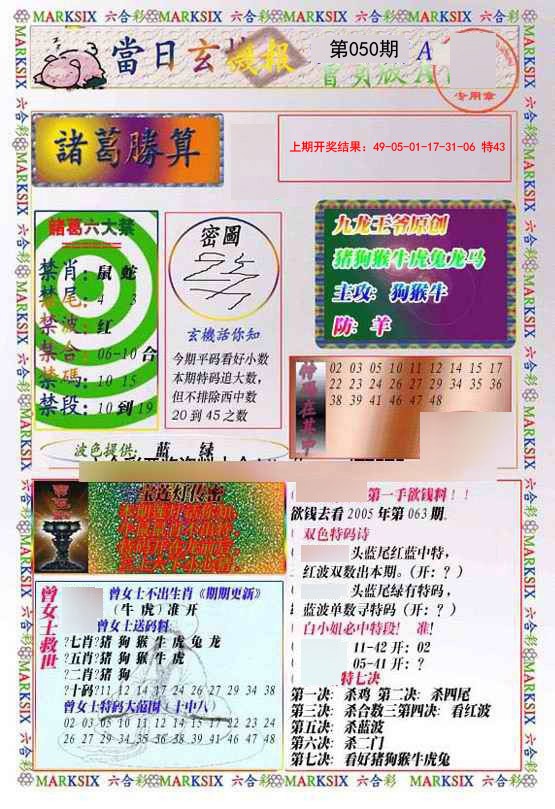 MARKSIX 六合彩 MARKSIX 六合彩 MARKSIX 六合彩 MARKSIX 六合彩 MARKSIX 六合彩
當日玄機报
第050期 A
专用章
諸葛勝算
上期开奖结果：49-05-01-17-31-06 特43
諸葛六大禁
禁肖：鼠 蛇
禁尾：4 3
禁波：红
禁合：06-10 合
禁碼：10 15
禁段：10 到 19
密圖
玄機話你知
今期平码看好小数
本期特码追大数，
但不排除西中数
20 到 45 之数
九龙王爷原创
猪狗猴牛虎兔龙马
主攻：狗猴牛
防：羊
02 03 05 10 11 12 14 15 17
22 23 24 26 27 29 34 35 36
38 39 41 46 47 48
波色提供：蓝 绿
宝莲灯传密
第一手欲钱料！！
欲钱去看 2005 年第 063 期.
双色特码诗
头蓝尾红蓝中特，
红波双数出本期。（开：？）
头蓝尾绿有特码，
蓝波单数寻特码（开：？）
白小姐必中特段！ 准！
11-42 开：02
05-41 开：？
特七决
第一决：杀鸡 第二决：杀四尾
第三决：杀合数三第四决：看红波
第五决：杀蓝波
第六决：杀二门
第七决：看好猪狗猴牛虎兔
曾女士救世
曾女士不出生肖《期期更新》
（牛 虎）准 开
曾女士送码料：
?七肖?猪 狗 猴 牛 虎 兔 龙
?五肖?猪 狗 猴 牛 虎
?二肖?猪 狗
?十码?11 12 14 17 24 26 27 29 34 38
曾女士特码大范围（十中八）
02 03 05 10 11 12 14 15 17 22 23 24
26 27 29 34 35 36 38 39 41 46 47 48
MARKSIX 六合彩 MARKSIX 六合彩 MARKSIX 六合彩 MARKSIX 六合彩 MARKSIX 六合彩